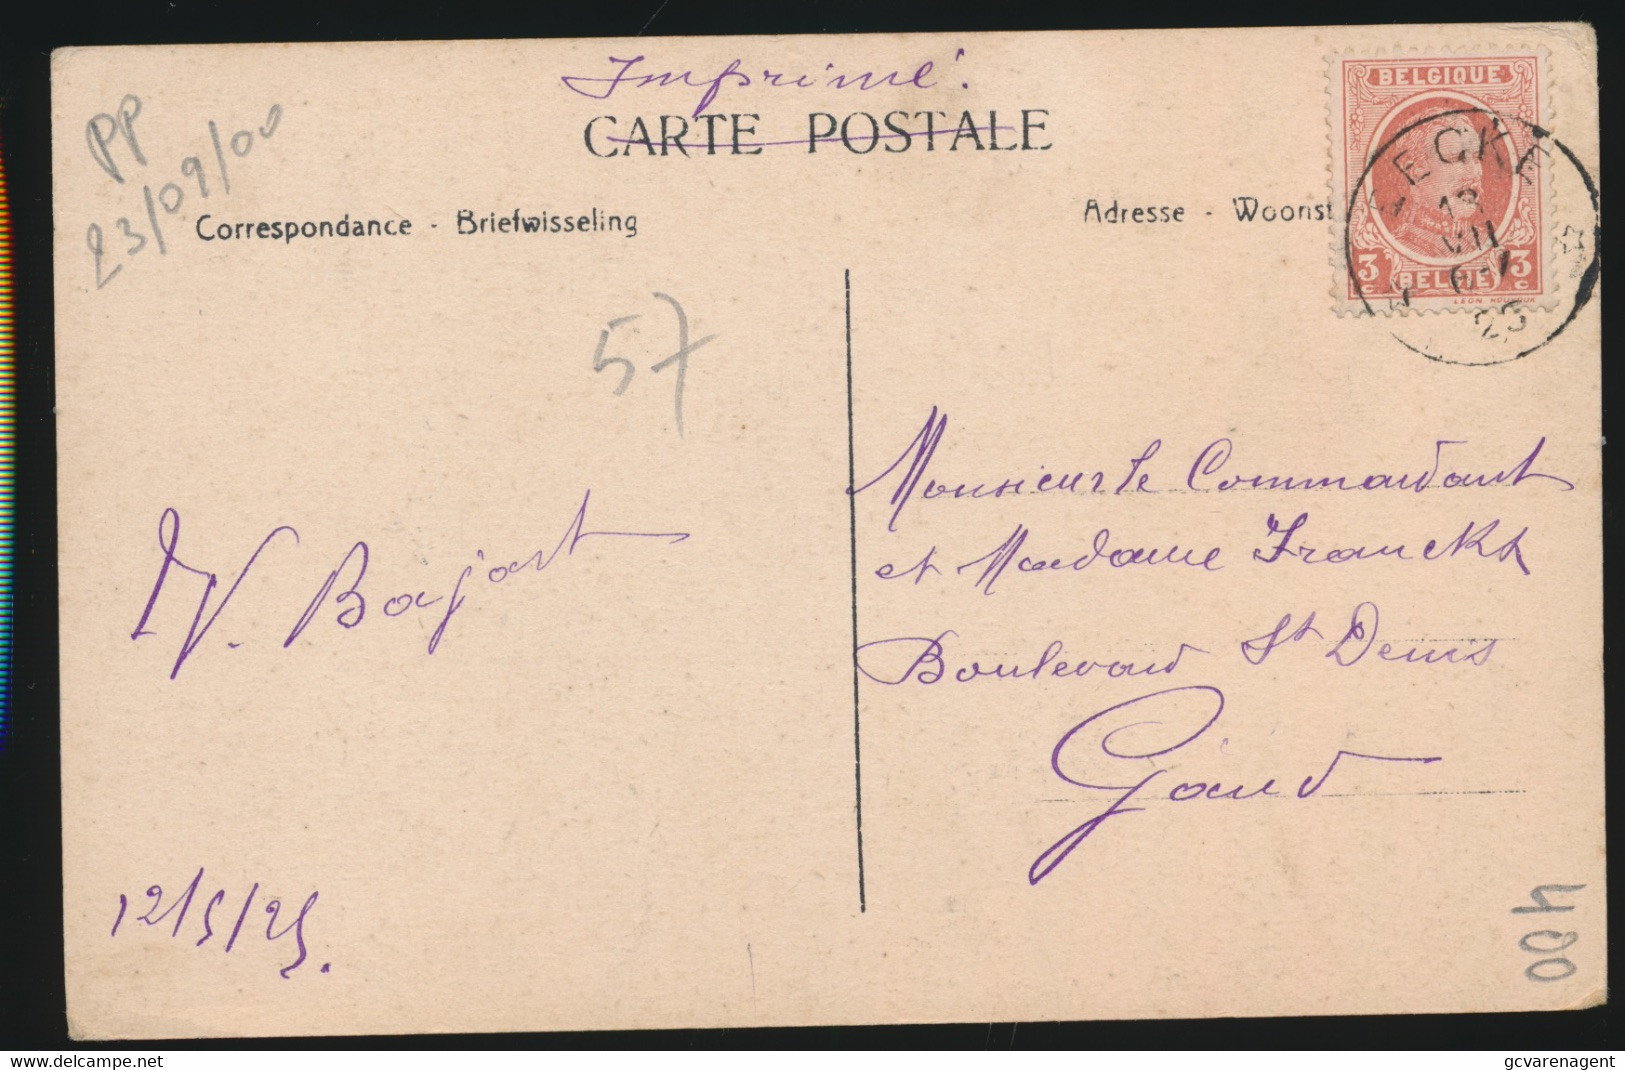 Imprimé.
CARTE POSTALE
PP
23/09/00
Correspondance - Briefwisseling
Adresse - Woonst
BELGIQUE
3 BELGIË 3
C C
ECKE
13
VII
57
Monsieur le Commandant
et Madame Franckx
Boulevard St Denis
Gand
W. Bajart
12/5/25.
400
www.delcampe.net
gcvarenagent